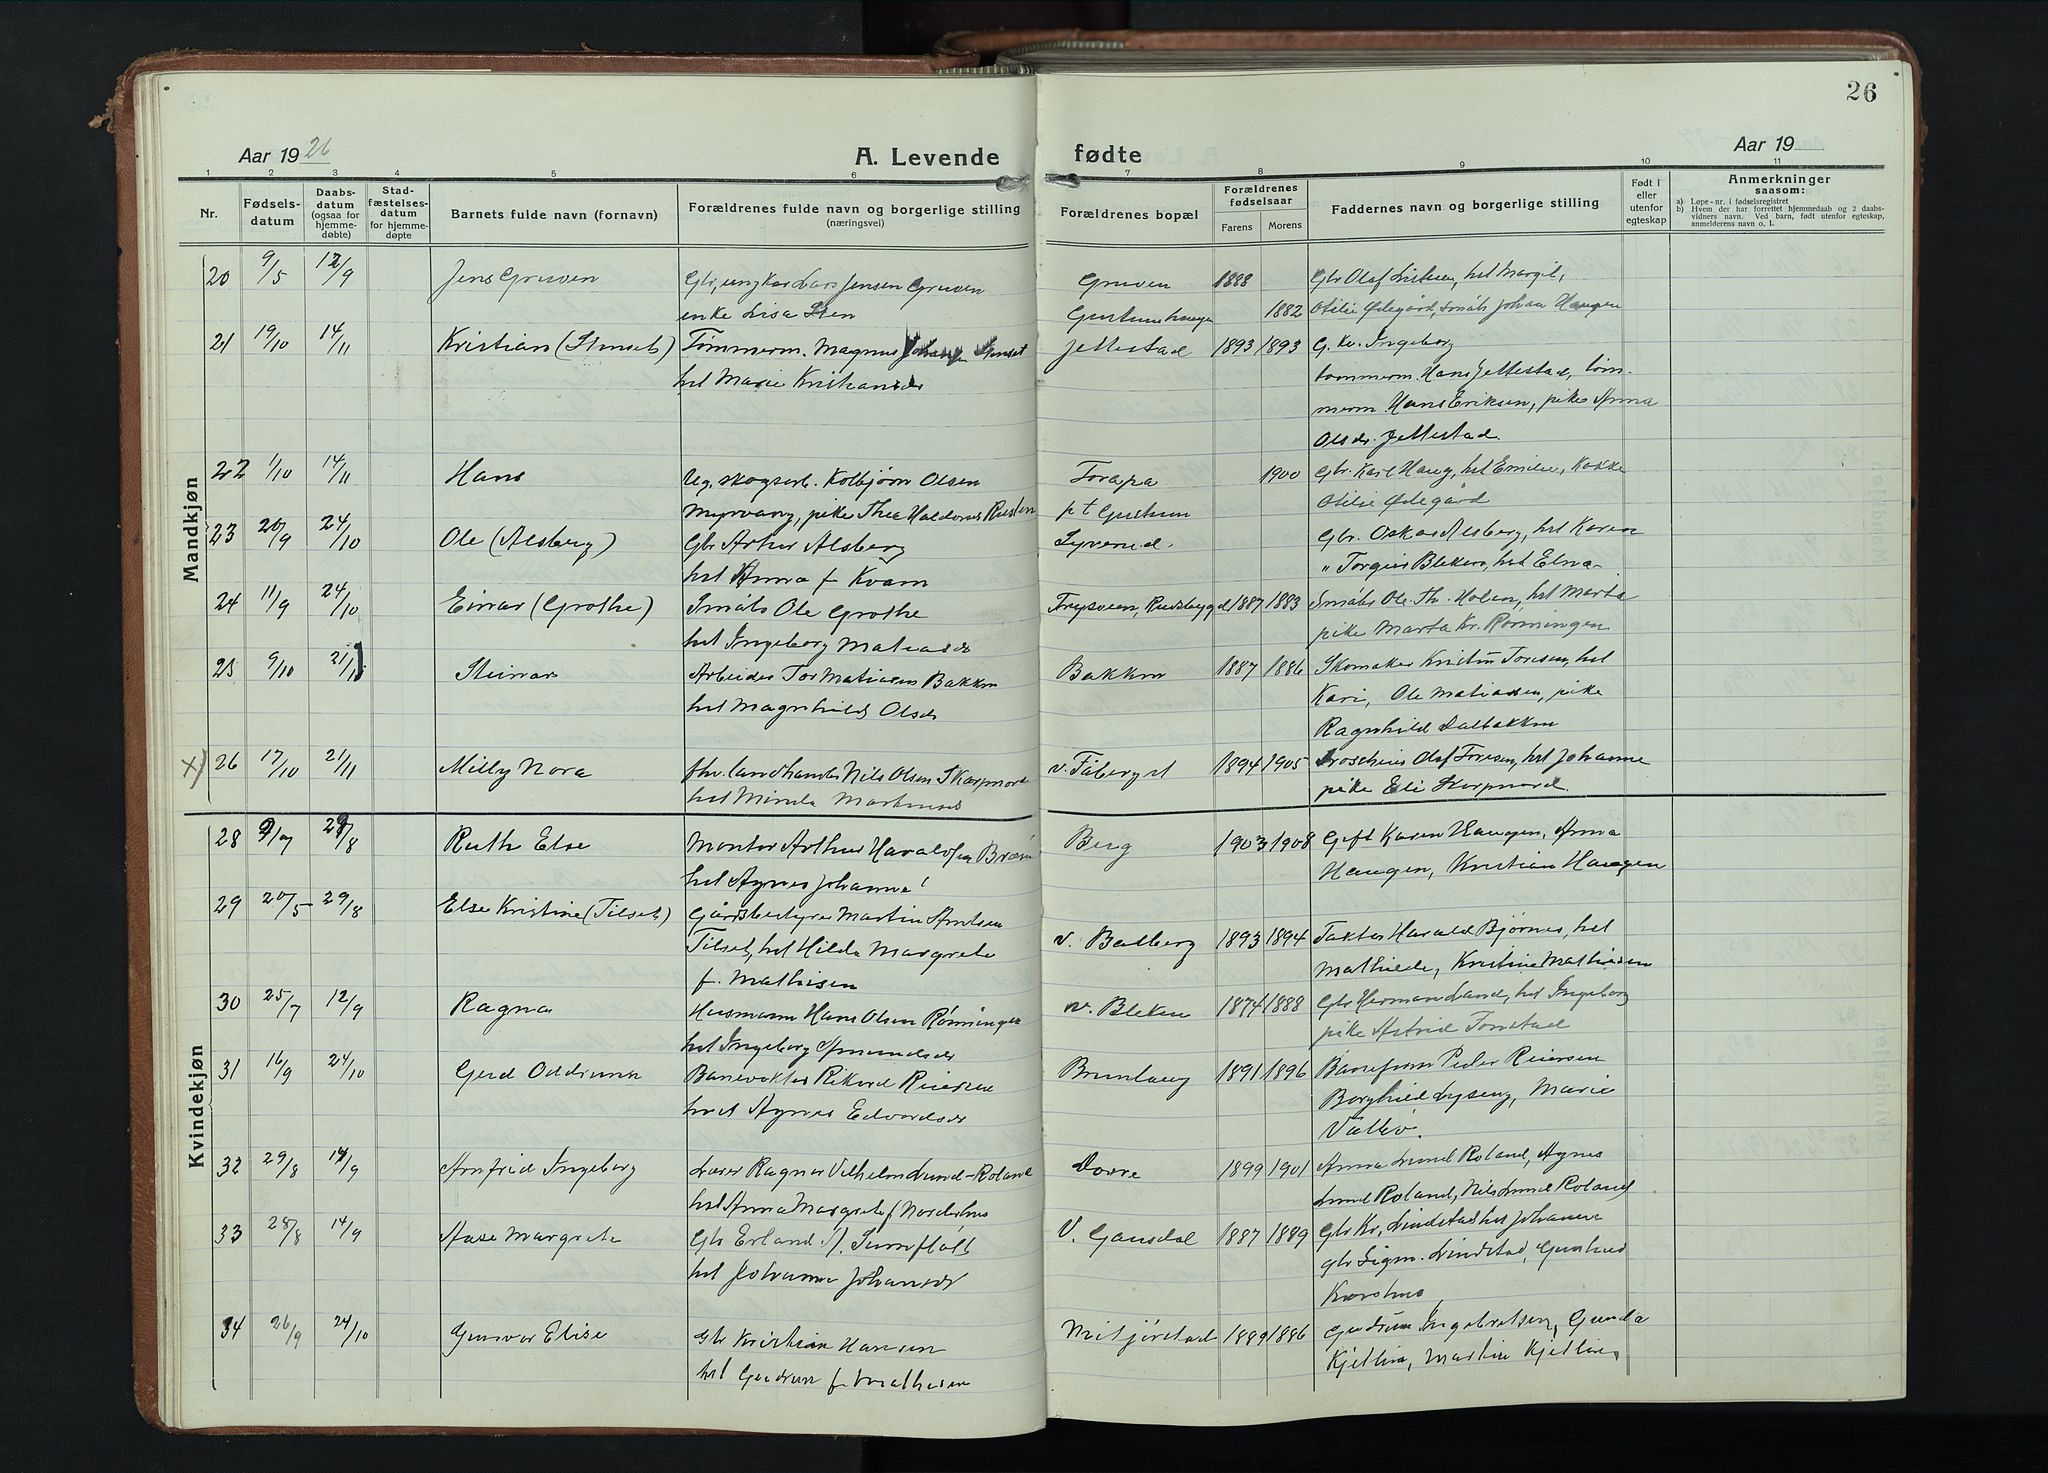 26
Aar 1926
A. Levende fødte
Aar 19
1 2 3 4 5 6 7 8 9 10 11
Nr.
Fødselsdatum
Daabsdatum (ogsaa for hjemmedøbte)
Stadfæstelsesdatum for hjemmedøpte
Barnets fulde navn (fornavn)
Forældrenes fulde navn og borgerlige stilling (næringsvei)
Forældrenes bopæl
Forældrenes fødselsaar
Farens Morens
Faddernes navn og borgerlige stilling
Født i eller utenfor egteskap
Anmerkninger saasom:
a) Løpe-nr. i fødselsregistret
b) Hvem der har forrettet hjemmedaab og 2 daabsvidners navn. Ved barn, født utenfor egteskap, anmelderens navn o. l.
Mandkjøn
20 9/5 12/9 Jens Gruven Gbr, ungkar Lars Jensen Gruven Gruven 1888 Gbr Olaf hst Margit,
enke Lisa 1882 Otilie Ødegård, småbr Johan Haugen
21 19/10 14/11 Kristian Tømmerm. Magnus Jettestad 1893 1893 G. kv. Ingeborg
hst Marie Kristiansdr tømmerm. Hans Jettestad, tøm-
merm Hans Eriksen, pike Anna
Olsdr. Jettestad
22 1/10 14/11 Hans Ug. skogsarb. Kolbjørn Olsen Torapa 1900 Gbr. Karl Haug, hst Emilie, Kokke
Myrvang, pike Thea Haldorsd p t Otilie Ødegård
23 20/9 24/10 Ole (Alsberg) Gbr Artur Alsberg Lyverud. Gbr. Oskar Alsberg, hst Karen
hst Anna f. Kvam " Torgeir Bleken, hst Elna
24 11/9 24/10 Einar (Grothe) Småbr Ole Grothe Rudsbygd 1887 1883 Småbr Ole Th. Holen, hst Marta
hst Ingeborg Matiasdr pike Marta Kr. Rønningen
25 9/10 21/11 Steinar Arbeider Tor Matiasen Bakken Bakken 1887 1886 Skomaker Kristian Toresen, hst
hst Magnhild Olsdr Kari, Ole Matiassen, pike
Ragnhild Dalbakken
x) 26 17/10 21/11 Milly Nora fhv. landhandler Nils Olsen Skarpnord v. Fåberg st 1894 1905 Olaf Toresen, hst Johanne
hst Minda Martinusd pike Eli Skarpnord
Kvindekjøn
28 9/7 29/8 Ruth Else Montør Arthur Haraldsen Berg 1903 1908 Gift Karen Haugen, Anna
hst Agnes Johanne Haugen, Kristian Haugen
29 20/5 29/8 Else Kristine (Tilset) Gårdsbestyrer Martin Arntsen
Tilset, hst Hilda Margrete v. Balberg 1893 1894 Traktør Harald Bjørnes, hst
f. Mathisen Mathilde, Kristine Mathisen
30 25/7 12/9 Ragna Husmann Hans Olsen Rønningen v. Bleken 1874 1888 Gbr Herman Lund, hst Ingeborg
hst Ingeborg Amundsdr pike Astrid Tonstad
31 16/9 24/10 Gerd Oddrunn Banevokter Rikard Reiersen Brunlaug 1891 1896 Baneform Peder Reiersen
hst Agnes Edvardsdr Borghild Lyseng, Marie
32 29/8 14/9 Arnfrid Ingeborg Lærer Ragnar Vilhelm Lund-Roland Dovre 1899 1901 Anna Lund Roland, Agnes
hst Anna Margrete f Norderhus Lund Roland, Nils Lund Roland
33 28/8 14/9 Aase Margrete Gbr Erland V. Gausdal 1887 1889 Gbr Kr. Lindstad hst Johanna
hst Johanna Johansdr gbr Sigm. Lindstad, Gunhild
34 26/9 24/10 Gunvor Elise Gbr Kristian Hansen 1889 1886 Gudrun Ingebretsen, Gunda
hst Gudrun f. Mathisen Kjetlien, Martin Kjetlien